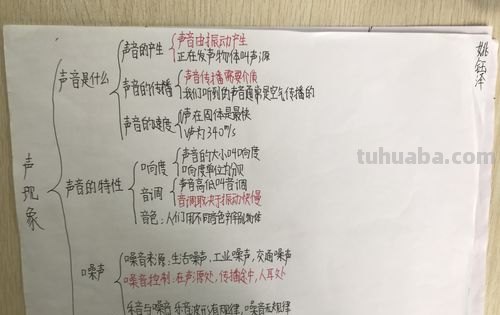 声音由振动产生
声音的产生
正在发声物体叫声源
声音是什么
声音传播需要介质
声音的传播
我们听到的声音通常是空气传播的
声在固体是最快
声音的速度
V声为340m/s
声现象
声音的大小叫响度
响度
响度单位为分贝
声音的特性
声音高低叫音调
音调
音调取决于振动快慢
音色:人们用不同音色判辨别物体
噪声
噪音来源:生活噪声,工业噪声,交通噪声
噪音控制:在声源处,传播途中,人耳处
乐音与噪音 乐音波形有规律,噪音无规律
姚钰泽
tuhuaba.com